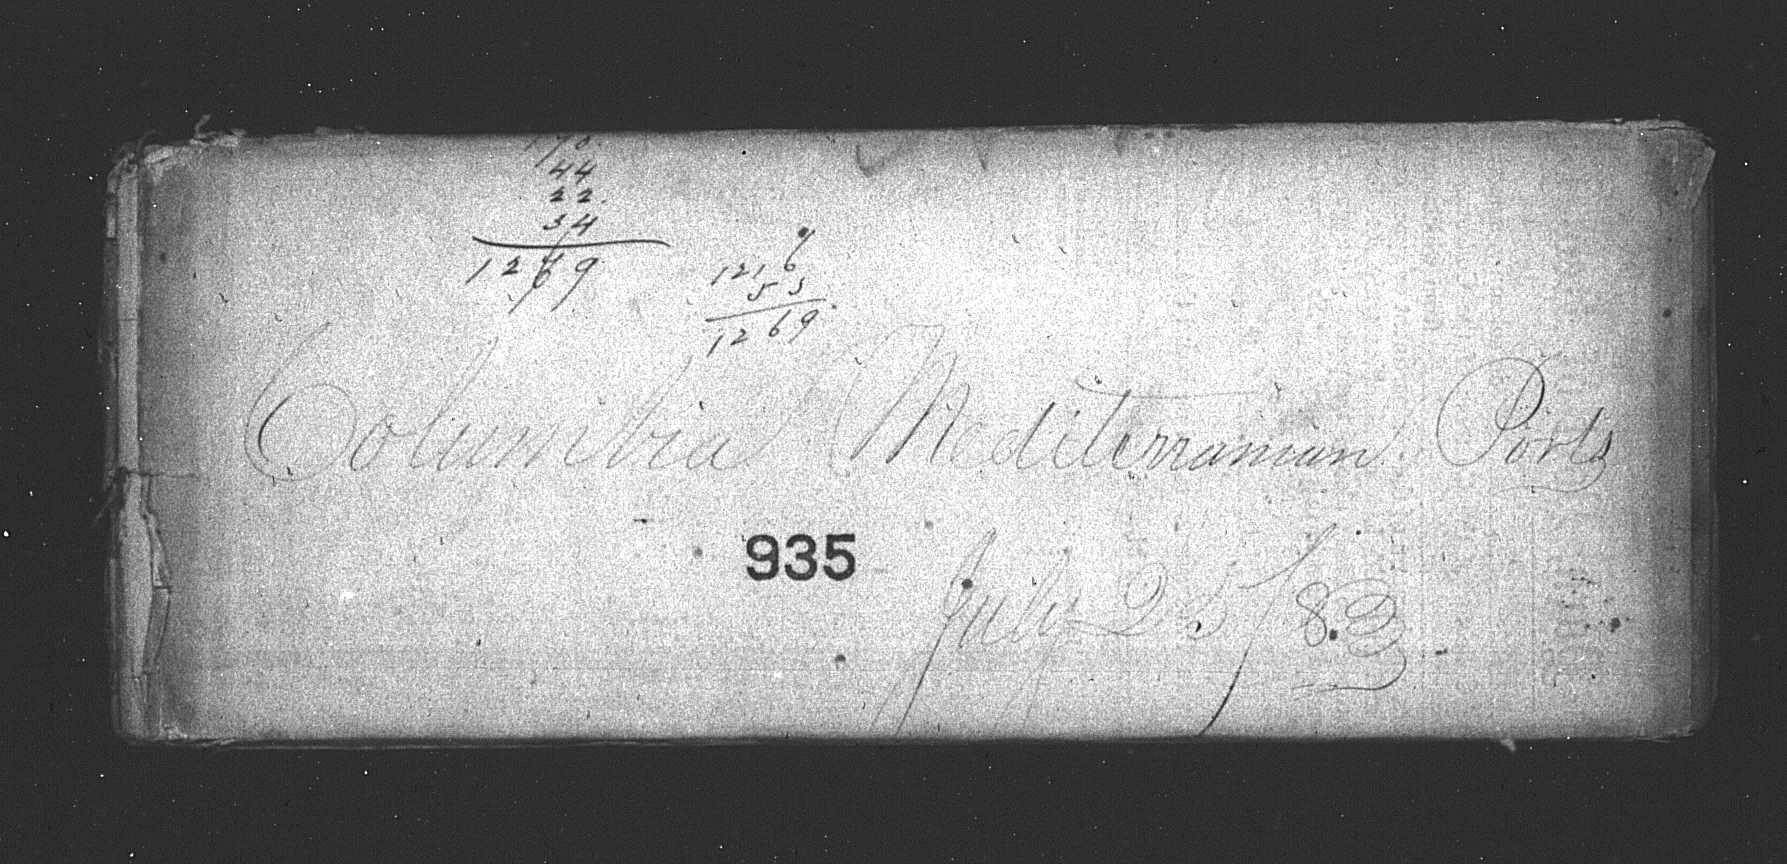 44
22
34
1269
1216
53
1269
Columbia Mediterranian Ports
935
July 25/83